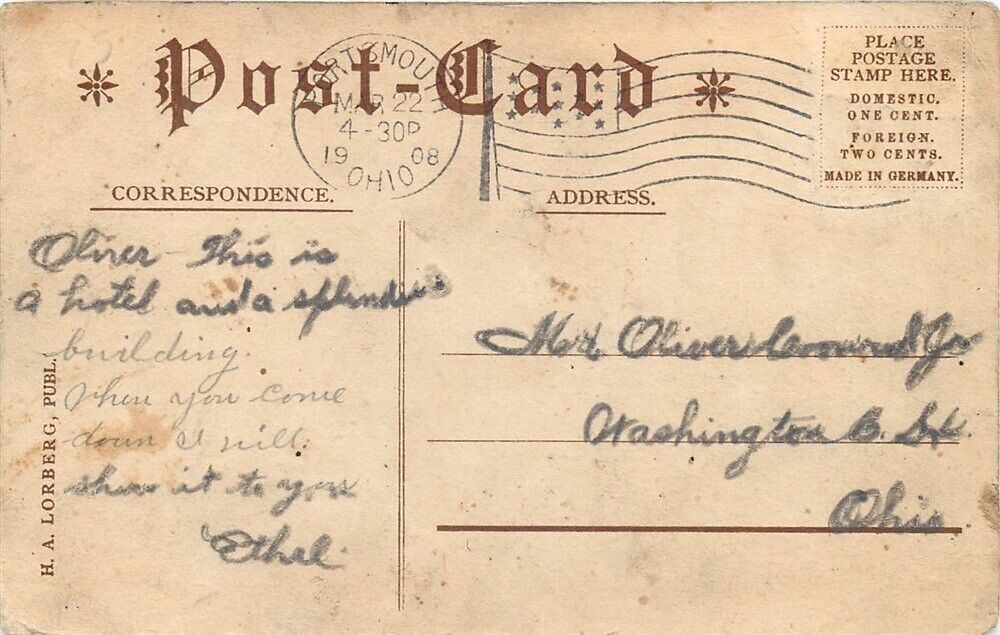 Post-Card
PORTSMOUTH
MAR 22
4-30P
1908
OHIO
PLACE
POSTAGE
STAMP HERE.
DOMESTIC.
ONE CENT.
FOREIGN.
TWO CENTS.
MADE IN GERMANY.
CORRESPONDENCE.
ADDRESS.
Oliver - This is
a hotel and a splendid
building.
When you come
down I will
show it to you
Ethel.
Oliver Jr
Washington C. H.
Ohio
H. A. LORBERG, PUBL.